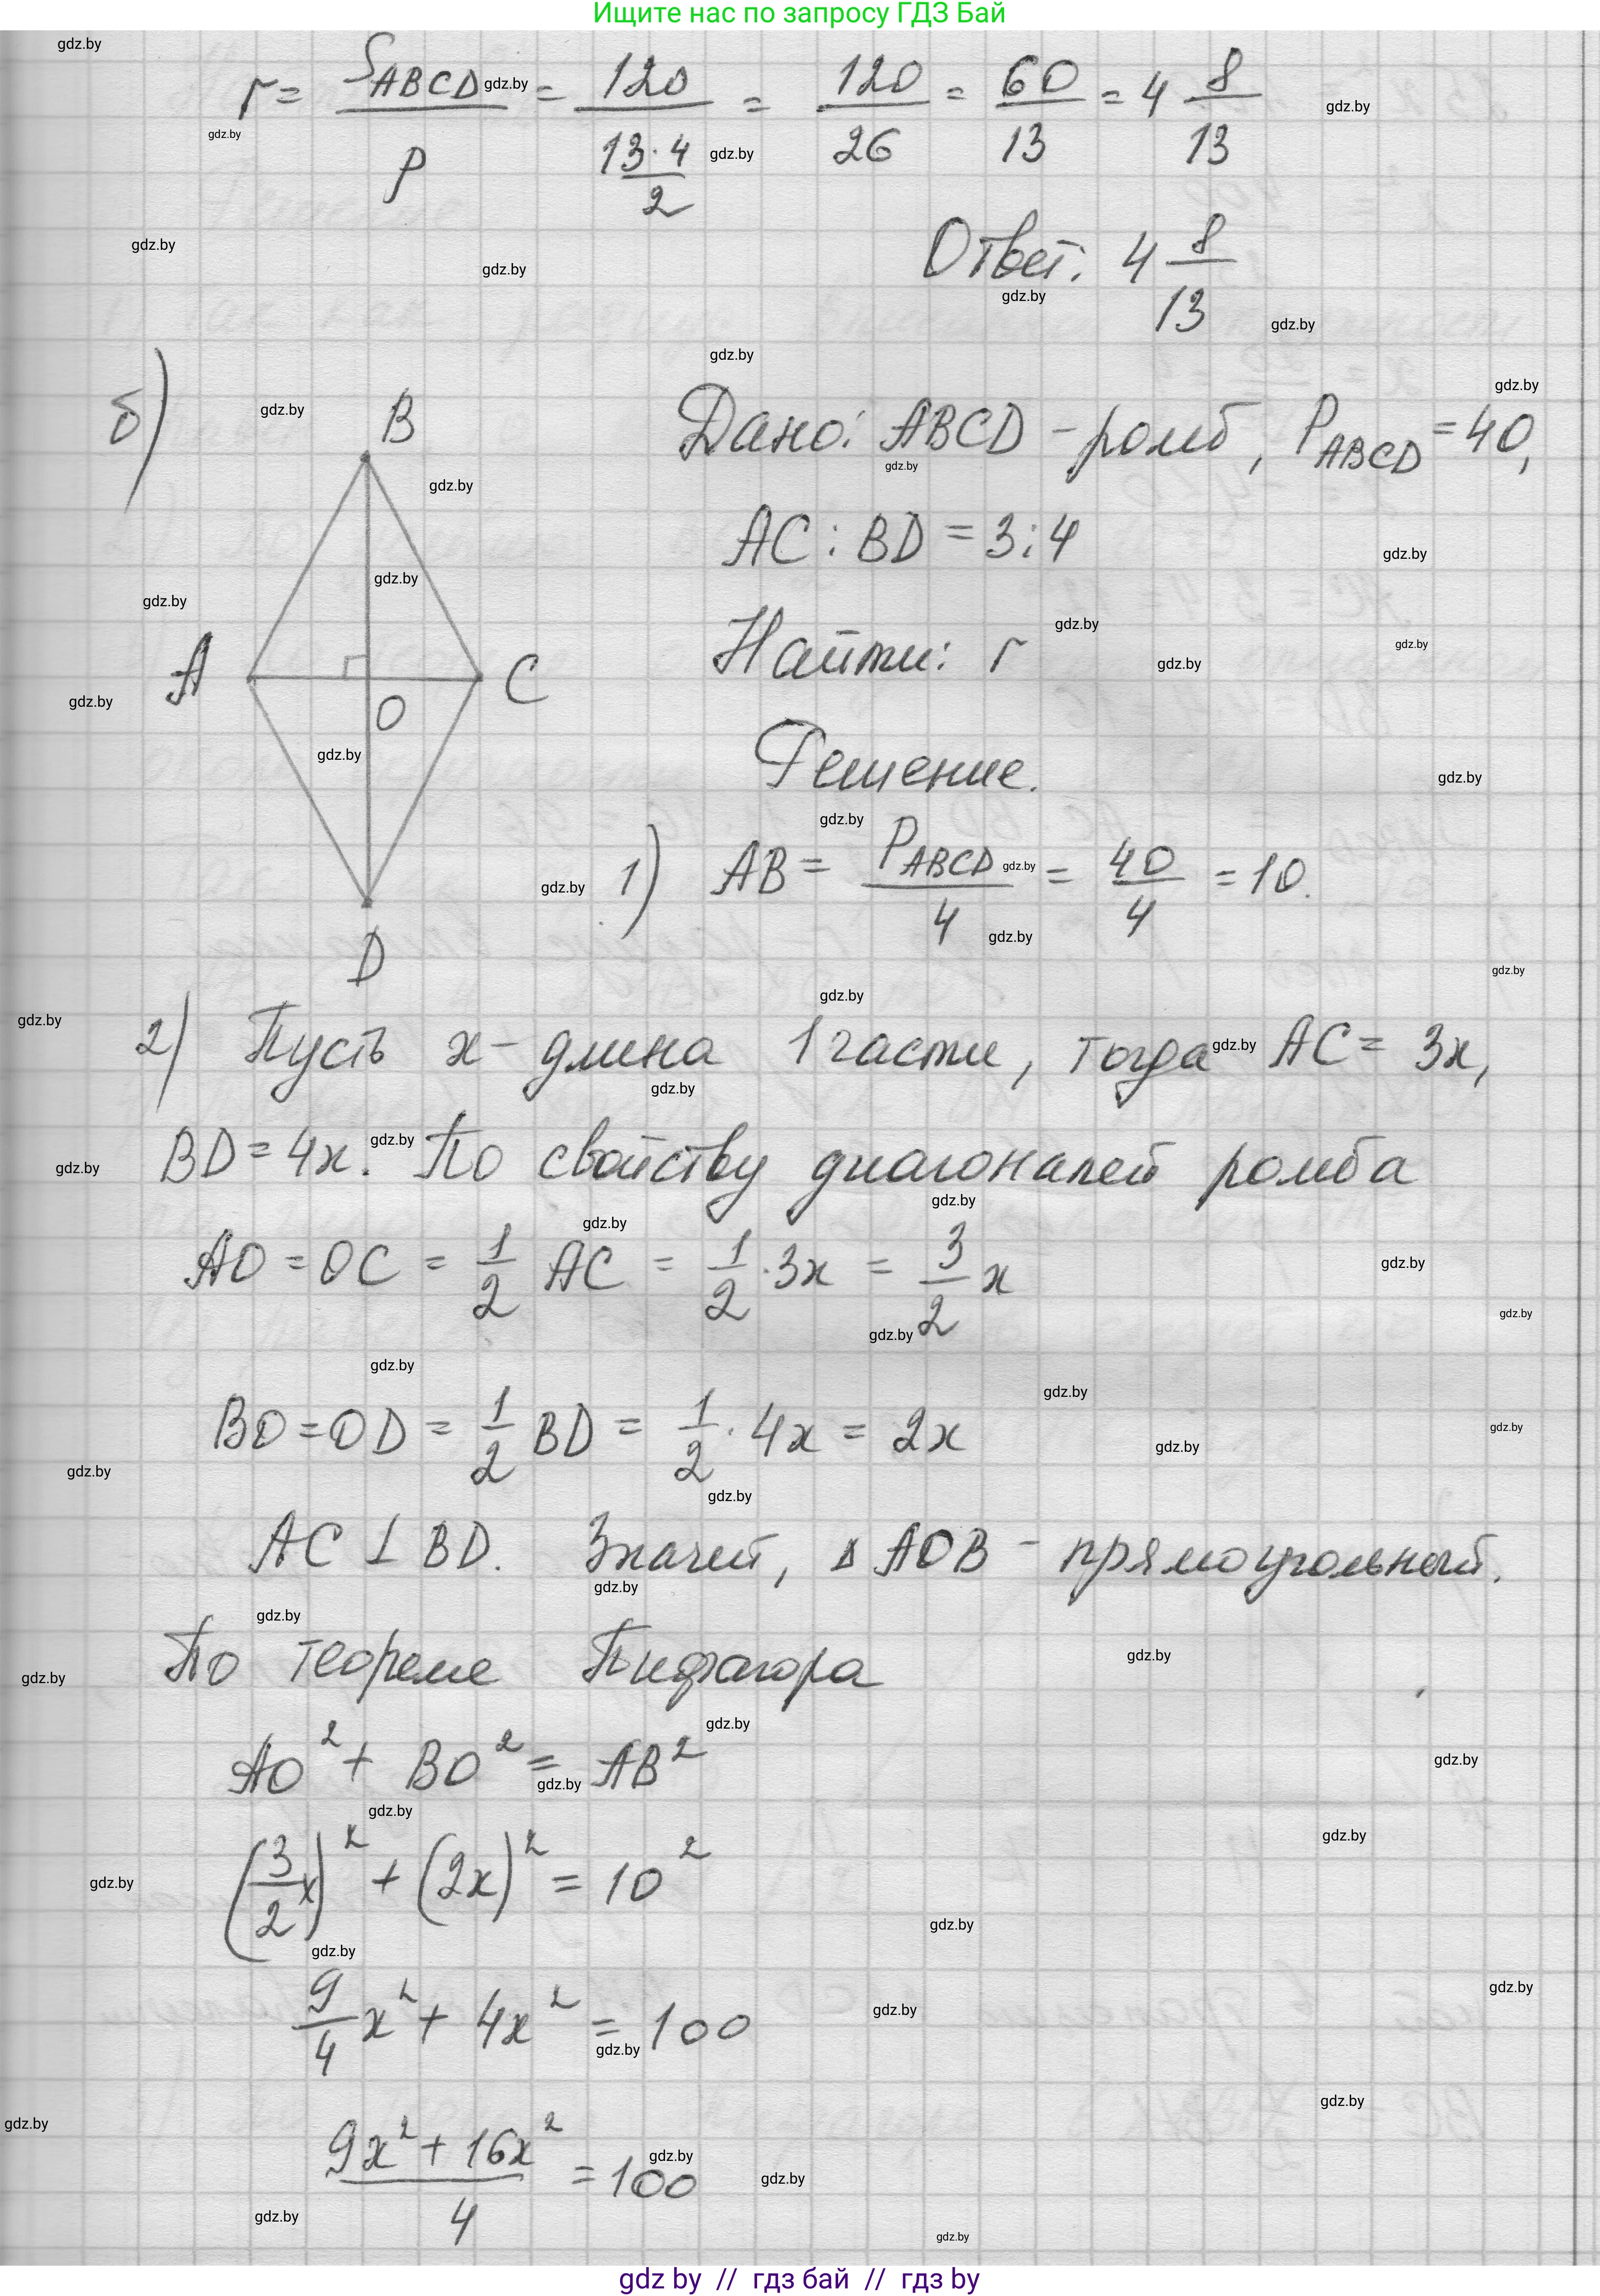 Ищите нас по запросу ГДЗ Бай
r = S_ABCD / p = 120 / (13·4 / 2) = 120/26 = 60/13 = 4 8/13
Ответ: 4 8/13
б)
B
A
C
O
D
Дано: ABCD - ромб, P_ABCD = 40,
AC : BD = 3 : 4
Найти: r
Решение.
1) AB = P_ABCD / 4 = 40/4 = 10.
2) Пусть x - длина 1 части, тогда AC = 3x,
BD = 4x. По свойству диагоналей ромба
AO = OC = 1/2 AC = 1/2 · 3x = 3/2 x
BO = OD = 1/2 BD = 1/2 · 4x = 2x
AC ⊥ BD. Значит, Δ AOB - прямоугольный.
По теореме Пифагора
AO² + BO² = AB²
(3/2 x)² + (2x)² = 10²
9/4 x² + 4x² = 100
(9x² + 16x²) / 4 = 100
gdz.by
gdz by // гдз бай // гдз by